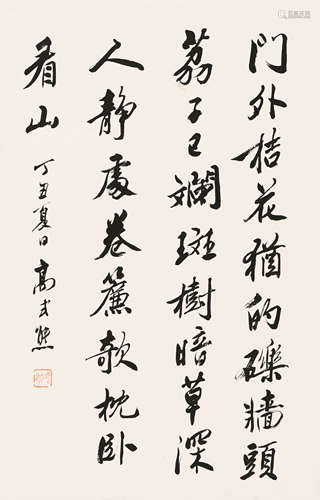 門外桔花猶的礫牆頭
荔子已斕斑樹暗草深
人靜處卷簾欹枕卧
看山
丁丑夏日高式熊